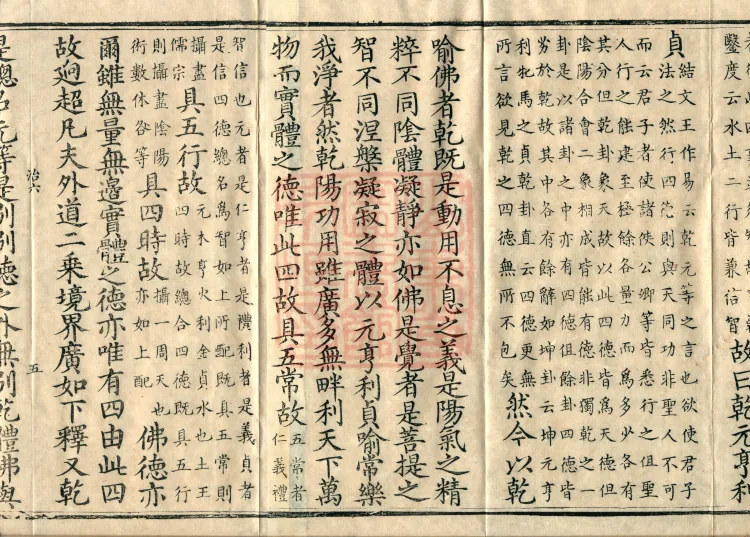 鑒度云水土二行皆兼信智故曰乾元亨利
貞結文王作易云乾元等之言也欲使君子
法之然行四德則與天同功非聖人不可
而云君子者使諸侯公卿等皆悉行之但聖
人行之能建至極餘各量力而爲多少各有
其分但乾卦象天故以此四德皆爲天德但
陰陽合會二象相成皆能有德非獨乾之一
卦是以諸卦之中亦有四德但餘卦四德皆
劣於乾故其中各有餘辭如坤卦云坤元亨
利牝馬之貞乾卦直云四德更無
所言欲見乾之四德無所不包矣然今以乾
喻佛者乾既是動用不息之義是陽氣之精
粹不同陰體凝靜亦如佛是覺者是菩提之
智不同涅槃凝寂之體以元亨利貞喻常樂
我淨者然乾陽功用雖廣多無畔利天下萬
物而實體之德唯此四故具五常故五常者
仁義禮
智信也元者是仁亨者是禮利者是義貞者
是信四德總名爲智如上所配既具五常則
攝盡
儒宗具五行故元木亨火利金貞水也土王
四時故總合四德既具五行
則攝盡陰陽
術數休咎等具四時故攝一周天也
亦如上配佛德亦
爾雖無量無邊實體之德亦唯有四由此四
故逈超凡夫外道二乘境界廣如下釋又乾
治六 五
是總名元等是別別德之外無別乾體佛與